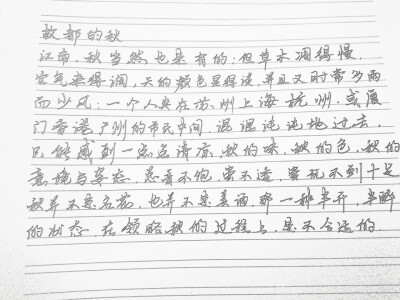 故都的秋
江南,秋当然也是有的;但草木凋得慢,
空气来得润,天的颜色显得淡,并且又时常多雨
而少风;一个人夹在苏州上海杭州,或厦
门香港广州的市民中间,混混沌沌地过去,
只能感到一点点清凉,秋的味,秋的色,秋的
意境与姿态,总看不饱,尝不透,赏玩不到十足
秋并不是名花,也并不是美酒,那一种半开,半醉
的状态,在领略秋的过程上,是不合适的.